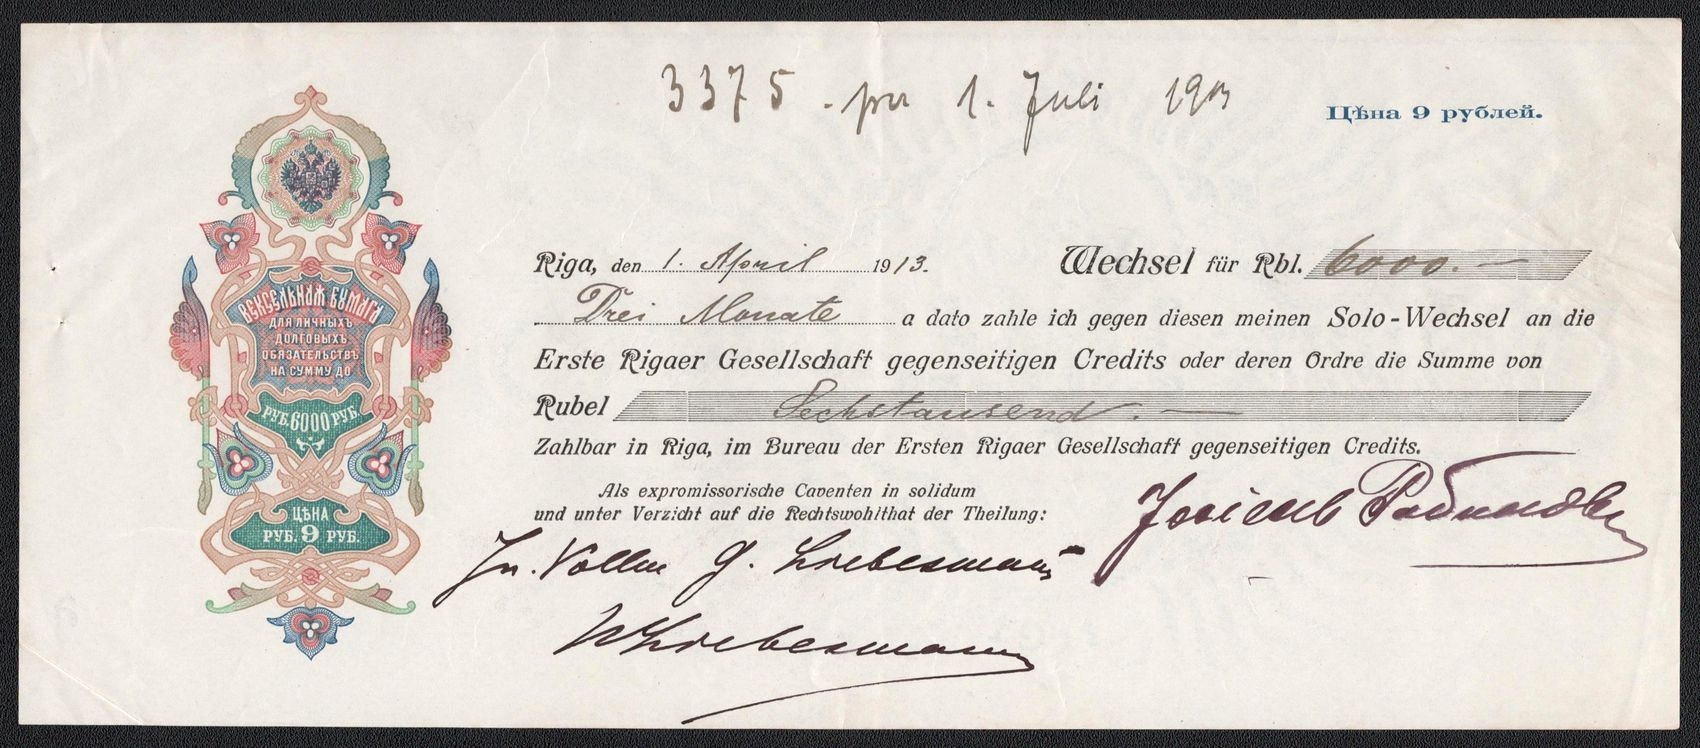 3375. per 1. Juli 1913
Цѣна 9 рублей.
ВЕКСЕЛЬНАЯ БУМАГА
ДЛЯ ЛИЧНЫХЪ
ДОЛГОВЫХЪ
ОБЯЗАТЕЛЬСТВЪ
НА СУММУ ДО
РУБ. 6000 РУБ.
ЦѢНА
РУБ. 9 РУБ.
Riga, den 1. April 1913. Wechsel für Rbl. 6000.—
Drei Monate a dato zahle ich gegen diesen meinen Solo-Wechsel an die
Erste Rigaer Gesellschaft gegenseitigen Credits oder deren Ordre die Summe von
Rubel Sechstausend.—
Zahlbar in Riga, im Bureau der Ersten Rigaer Gesellschaft gegenseitigen Credits.
Als expromissorische Caventen in solidum
und unter Verzicht auf die Rechtswohlthat der Theilung:
G. Liebesmann
Liebesmann